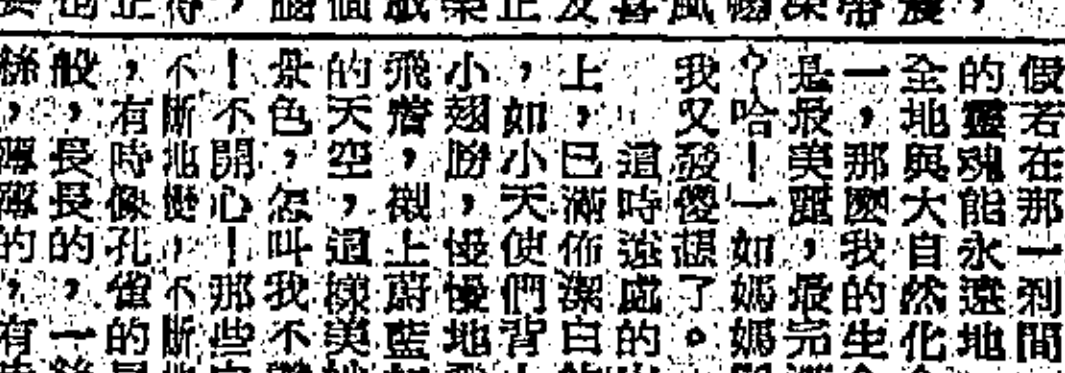 假若在那一刹間
的靈魂能永遠地
全地與大自然化
一，那麽我的生
是最美麗，最完
？哈！一如媽媽
我又發傻想了。
這時遠處的
上，已滿佈潔白
，如小天使們背
小翅勝，慢慢地
飛着，襯上蔚藍
的天空，這樣美
景色，怎叫我不
！不開心！那些
不斷地變，不斷
，有時像孔雀的
般，長長的，一
絲，薄薄的，有